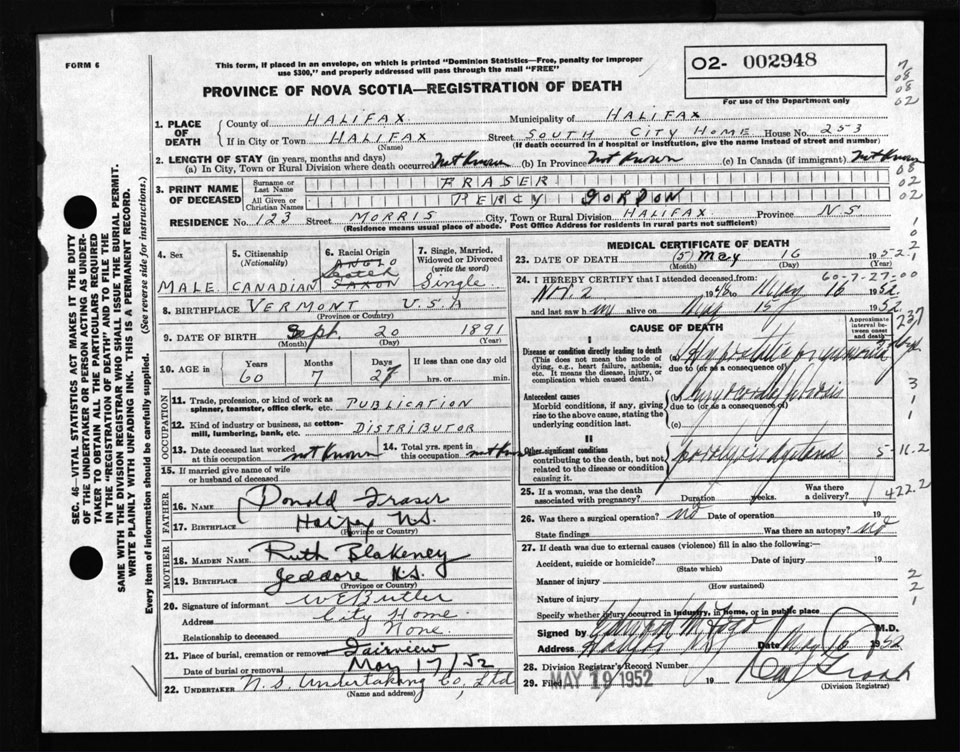 FORM 6
This form, if placed in an envelope, on which is printed "Dominion Statistics—Free, penalty for improper
use $300," and properly addressed will pass through the mail "FREE"
02- 002948
For use of the Department only
PROVINCE OF NOVA SCOTIA—REGISTRATION OF DEATH
1. PLACE OF DEATH
County of HALIFAX Municipality of HALIFAX
If in City or Town HALIFAX Street SOUTH CITY HOME House No. 253
(Name) (If death occurred in a hospital or institution, give the name instead of street and number)
2. LENGTH OF STAY (in years, months and days)
(a) In City, Town or Rural Division where death occurred Not Known (b) In Province Not Known (c) In Canada (if immigrant) Not Known
3. PRINT NAME OF DECEASED
Surname or Last Name FRASER
All Given or Christian Names PERCY GORDON
RESIDENCE No. 123 Street MORRIS City, Town or Rural Division HALIFAX Province NS
(Residence means usual place of abode. Post Office Address for residents in rural parts not sufficient)
4. Sex MALE
5. Citizenship (Nationality) CANADIAN
6. Racial Origin ANGLO Scotch SAXON
7. Single, Married, Widowed or Divorced (write the word) Single
8. BIRTHPLACE VERMONT U.S.A
(Province or Country)
9. DATE OF BIRTH Sept. 20 1891
(Month) (Day) (Year)
10. AGE in Years Months Days If less than one day old
60 7 27 hrs. or min.
OCCUPATION
11. Trade, profession, or kind of work as
spinner, teamster, office clerk, etc. PUBLICATION
12. Kind of industry or business, as cotton-
mill, lumbering, bank, etc. DISTRIBUTOR
13. Date deceased last worked at this occupation not Known
14. Total yrs. spent in this occupation not Known
15. If married give name of wife
or husband of deceased
FATHER
16. NAME Donald Fraser
17. BIRTHPLACE Halifax N.S.
(Province or Country)
MOTHER
18. MAIDEN NAME Ruth Blakeney
19. BIRTHPLACE Jeddore N.S.
(Province or Country)
20. Signature of informant W E Butler
Address City Home
Relationship to deceased None.
21. Place of burial, cremation or removal Fairview
Date of burial or removal May 17/52
22. UNDERTAKER N.S. Undertaking Co, Ltd
(Name and address)
MEDICAL CERTIFICATE OF DEATH
23. DATE OF DEATH (5) May 16 1952
(Month) (Day) (Year)
24. I HEREBY CERTIFY that I attended deceased from: 60-7-27-00
1948 to May 16 1952
and last saw him alive on May 15 1952
CAUSE OF DEATH
Approximate interval between onset and death
I
Disease or condition directly leading to death
(This does not mean the mode of
dying, e.g., heart failure, asthenia,
etc. It means the disease, injury, or
complication which caused death.)
(a) Hypostatic pneumonia
due to (or as a consequence of)
Antecedent causes
Morbid conditions, if any, giving
rise to the above cause, stating the
underlying condition last.
(b) Myocardial fibrosis
due to (or as a consequence of)
(c)
II
Other significant conditions
contributing to the death, but not
related to the disease or condition
causing it.
25. If a woman, was the death
associated with pregnancy? Duration weeks. Was there a delivery?
26. Was there a surgical operation? no Date of operation 19
State findings Was there an autopsy? no
27. If death was due to external causes (violence) fill in also the following:
Accident, suicide or homicide? Date of injury 19
(State which)
Manner of injury
(How sustained)
Nature of injury
Specify whether injury occurred in industry, in home, or in public place
Signed by M.D.
Address Halifax NS Date May 16 1952
28. Division Registrar's Record Number
29. Filed MAY 19 1952 19
(Division Registrar)
237
422.2
SEC. 46—VITAL STATISTICS ACT MAKES IT THE DUTY
OF THE UNDERTAKER OR PERSON ACTING AS UNDER-
TAKER TO OBTAIN ALL THE PARTICULARS REQUIRED
IN THE "REGISTRATION OF DEATH" AND TO FILE THE
SAME WITH THE DIVISION REGISTRAR WHO SHALL ISSUE THE BURIAL PERMIT.
WRITE PLAINLY WITH UNFADING INK. THIS IS A PERMANENT RECORD.
Every item of information should be carefully supplied. (See reverse side for instructions.)